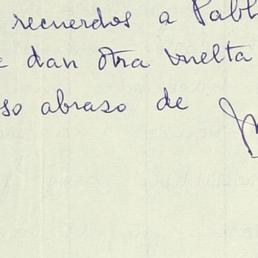 recuerdos a Pabl
dan otra vuelta
so abraso de